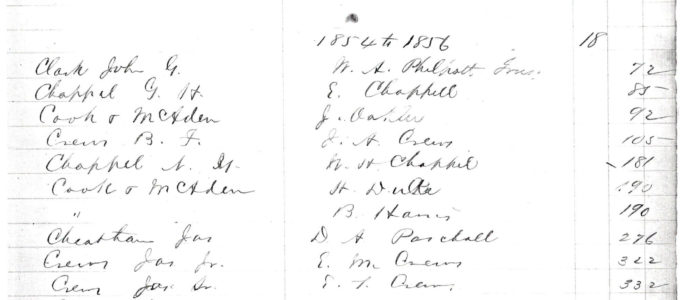 1854 to 1856 18
Clark John G. W. A. Philpott 72
Chappel G. H. E. Chappell 85
Cook & McAden J. Oakley 92
Crews B. F. J. A. Crews 105
Chappel N. W. H. Chappel 181
Cook & McAden H. Duke 190
" B. Harris 190
Cheatham Jas D. A. Paschall 276
Crews Jas Jr. E. M. Crews 322
Crews Jas. Sr. E. T. Crews 332